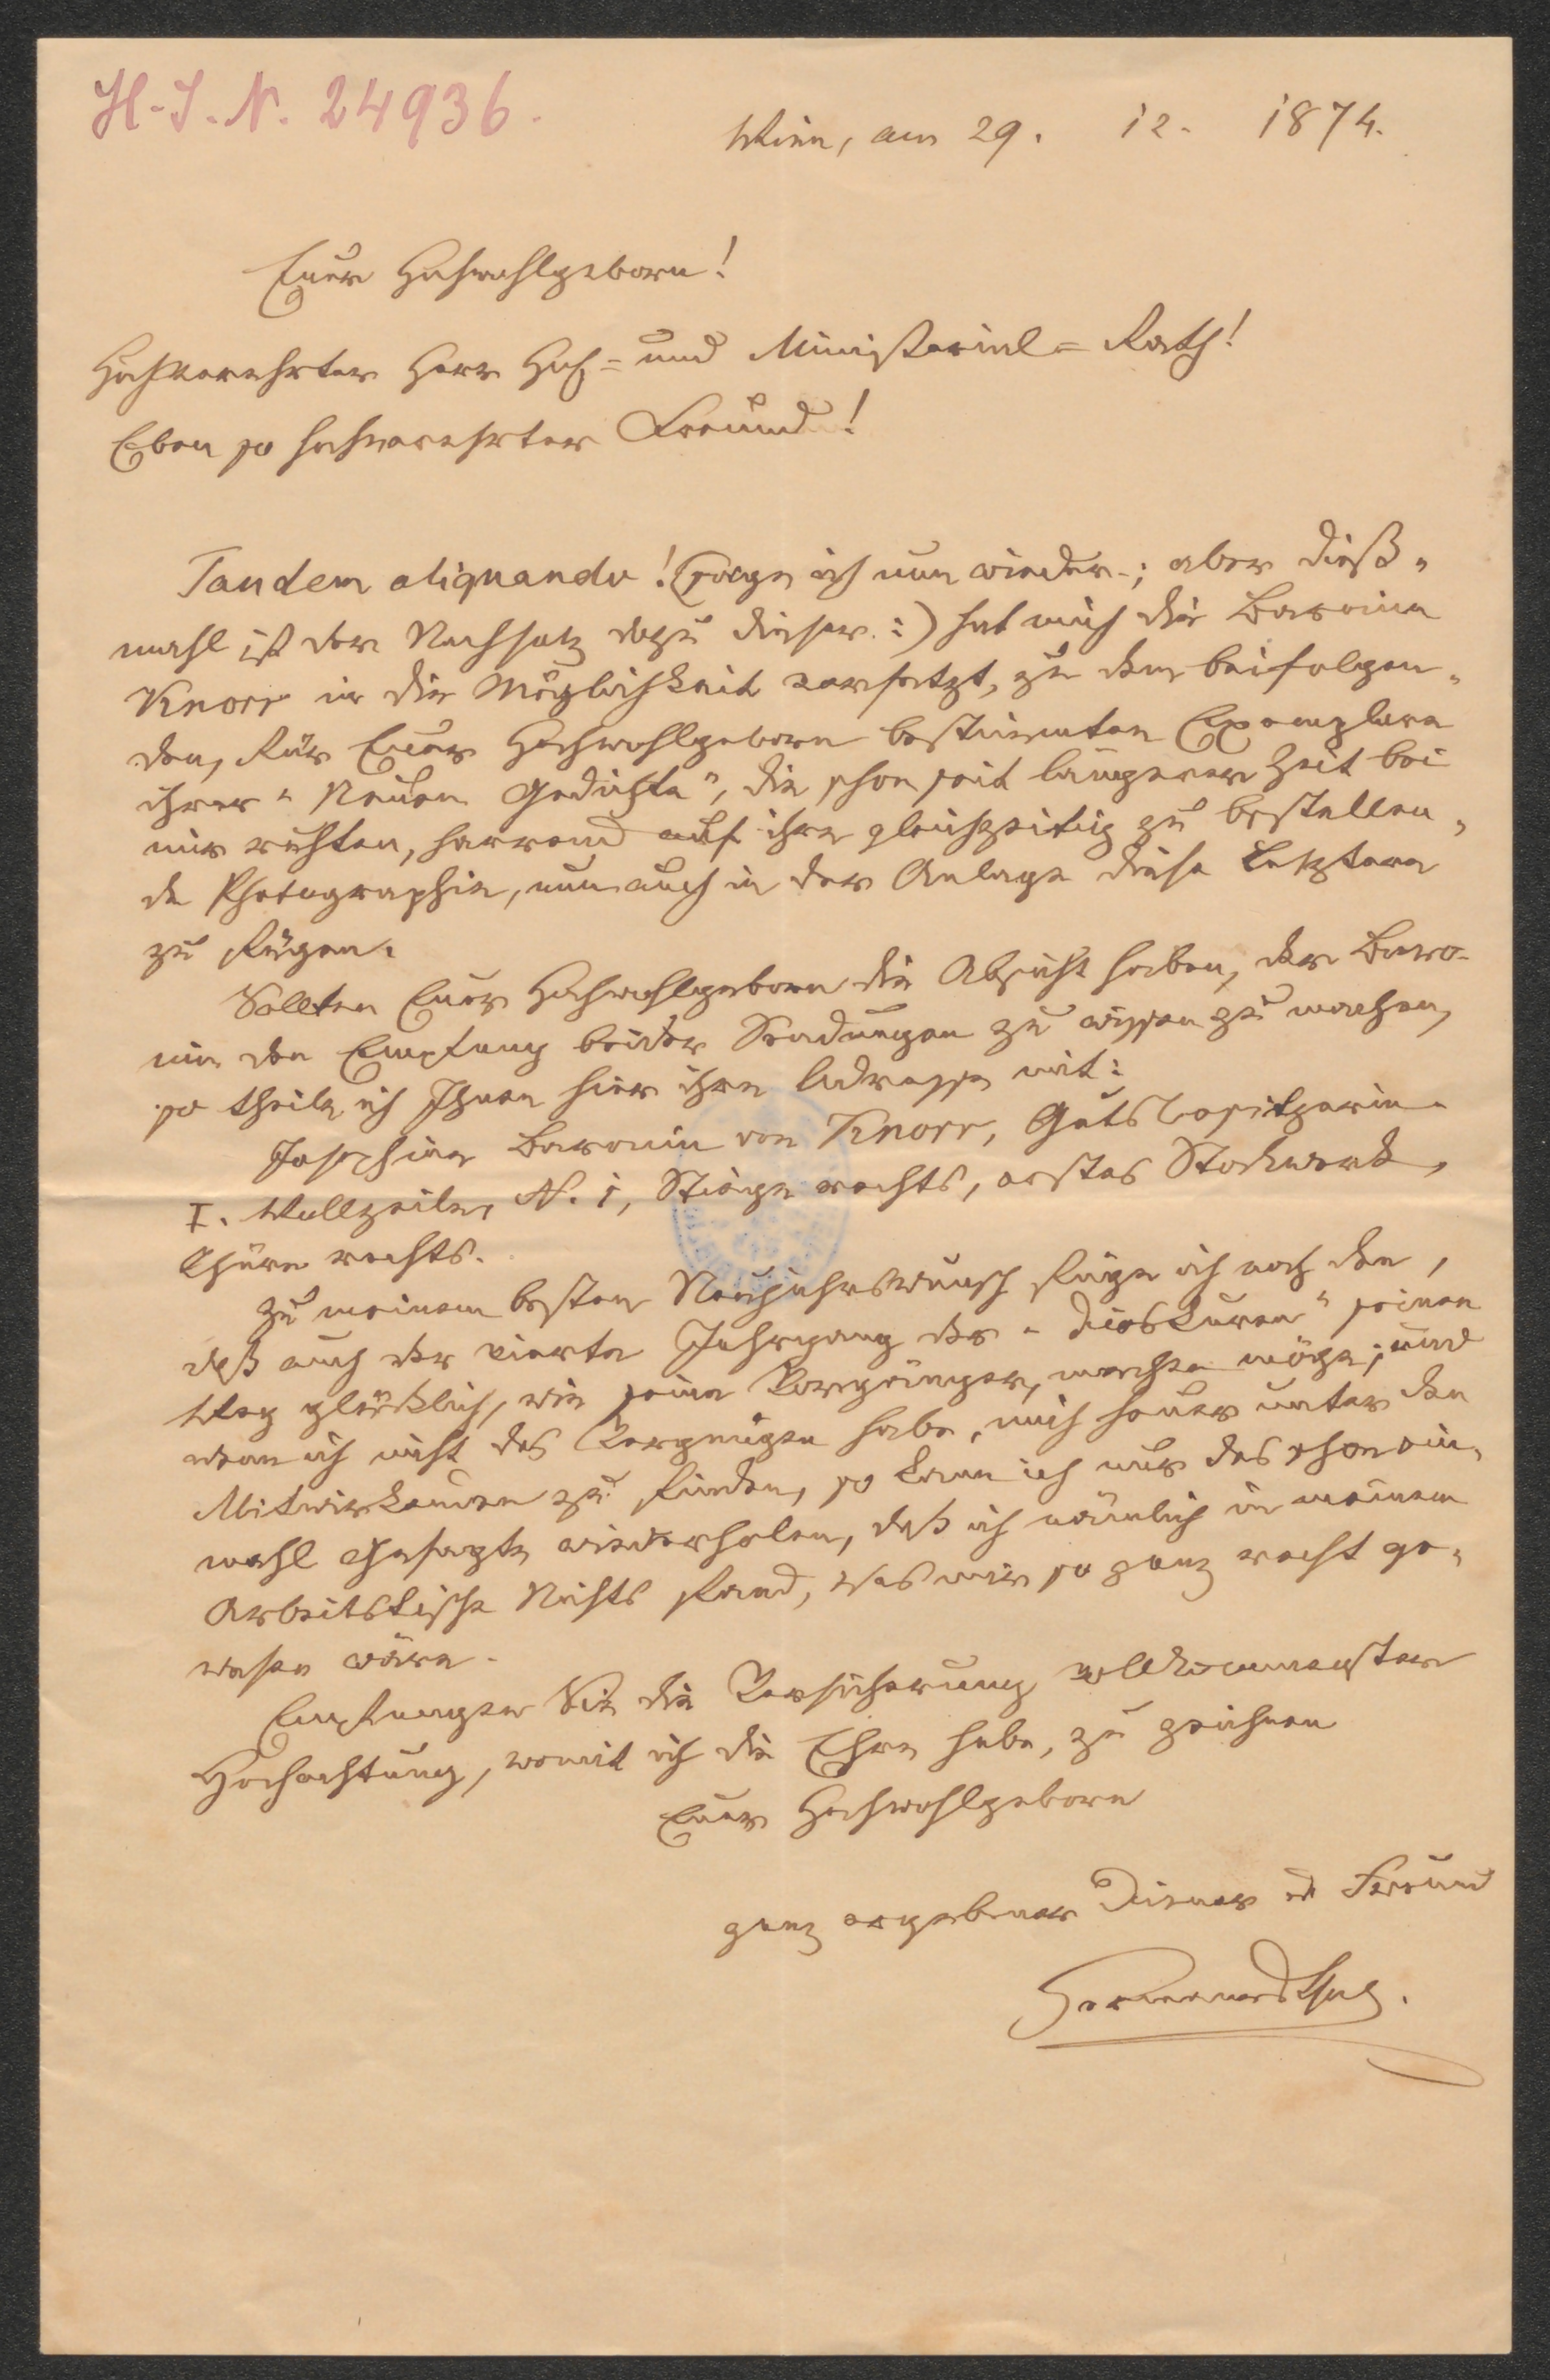 H.I.N. 24936.
Wien, am 29. 12. 1874.
Euer Hochwohlgeborn!
Hochverehrter Herr Hof- und Ministerial-Rath!
Eben so hochverehrter Freund!
Tandem aliquando! (sage ich nun wieder; aber dieß-
mahl ist der Nachsatz dazu dieser:) hat mich die Baronin
Knorr in die Möglichkeit versetzt, zu dem beifolgen-
den, für Euer Hochwohlgeborn bestimmten Exemplare
ihrer „Neuen Gedichte", die schon seit längerer Zeit bei
mir ruhten, harrend auf ihre gleichzeitig zu bestellen-
de Photographie, nun auch in der Anlage diese Letztere
zu fügen.
Sollten Euer Hochwohlgeborn die Absicht haben, der Baro-
nin den Empfang beider Sendungen zu wissen zu machen,
so theile ich Ihnen hier ihre Adresse mit:
Josephine Baronin von Knorr, Gutsbesitzerin.
I. Wollzeile, N. 1, Stiege rechts, erstes Stockwerk,
Thüre rechts.
Zu meinem besten Neujahrswunsch füge ich noch den,
daß auch der vierte Jahrgang der „Dioskuren" seinen
Weg glücklich, wie seine Vorgänger, machen möge; und
wenn ich nicht das Vergnügen habe, mich heuer unter den
Mitwirkenden zu finden, so kann ich nur das schon ein-
mahl Gesagte wiederholen, daß ich nämlich in meinem
Arbeitstische Nichts fand, was mir so ganz recht ge-
wesen wäre.
Empfangen Sie die Versicherung vollkommenster
Hochachtung, womit ich die Ehre habe, zu zeichnen
Euer Hochwohlgeborn
ganz ergebener Diener u Freund